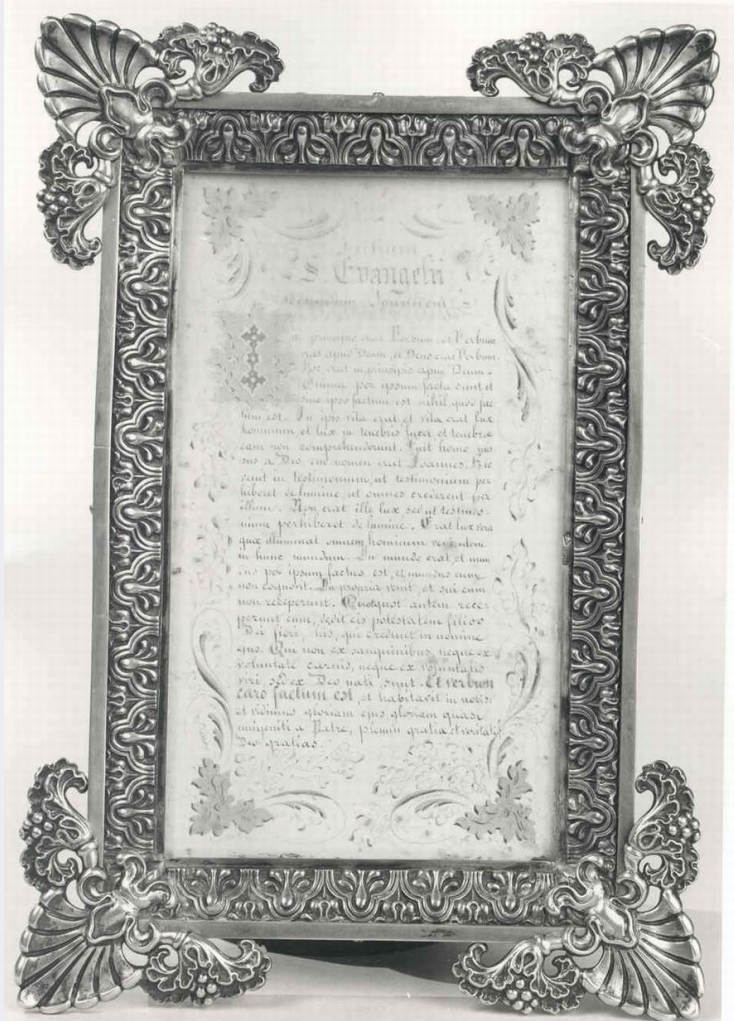 Initium
S. Evangelii
secundum Joannem
In principio erat Verbum, et Verbum
erat apud Deum, et Deus erat Verbum.
Hoc erat in principio apud Deum.
Omnia per ipsum facta sunt, et
sine ipso factum est nihil, quod fac
tum est. In ipso vita erat, et vita erat lux
hominum, et lux in tenebris lucet, et tenebræ
eam non comprehenderunt. Fuit homo mis
sus a Deo, cui nomen erat Joannes. Hic
venit in testimonium, ut testimonium per
hiberet de lumine, ut omnes crederent per
illum. Non erat ille lux sed ut testimo-
nium perhiberet de lumine. Erat lux vera
quæ illuminat omnem hominem venientem
in hunc mundum. In mundo erat, et mun
dus per ipsum factus est, et mundus eum
non cognovit. In propria venit, et sui eum
non receperunt. Quotquot autem rece-
perunt eum, dedit eis potestatem filios
Dei fieri, his, qui credunt in nomine
ejus. Qui non ex sanguinibus, neque ex
voluntate carnis, neque ex voluntate
viri, sed ex Deo nati sunt. Et verbum
caro factum est, et habitavit in nobis:
et vidimus gloriam ejus, gloriam quasi
unigeniti a Patre, plenum gratiæ et veritatis
Deo gratias.